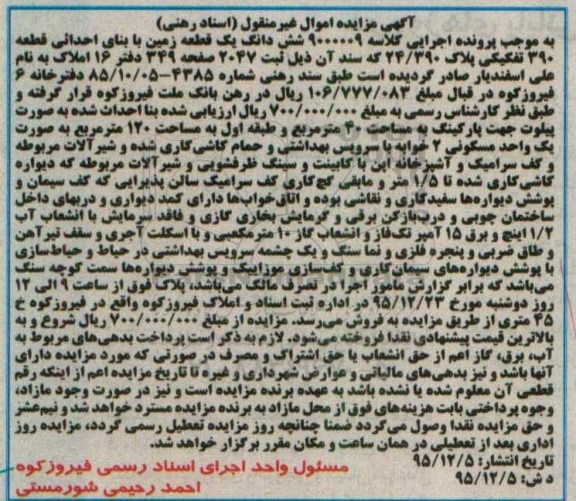 آگهی مزایده اموال غیرمنقول (اسناد رهنی)
به موجب پرونده اجرایی کلاسه ۹۰۰۰۰۰۹ شش دانگ یک قطعه زمین با بنای احداثی قطعه
۳۹۰ تفکیکی پلاک ۲۴/۳۹۰ که سند آن ذیل ثبت ۲۰۴۷ صفحه ۳۴۹ دفتر ۱۶ املاک به نام
علی اسفندیار صادر گردیده است طبق سند رهنی شماره ۴۳۸۵-۸۵/۱۰/۰۵ دفترخانه ۶
فیروزکوه در قبال مبلغ ۱۰۶/۷۷۷/۰۸۳ ریال در رهن بانک ملت فیروزکوه قرار گرفته و
طبق نظر کارشناس رسمی به مبلغ ۷۰۰/۰۰۰/۰۰۰ ریال ارزیابی شده بنا احداث شده به صورت
پیلوت جهت پارکینگ به مساحت ۴۰ مترمربع و طبقه اول به مساحت ۱۲۰ مترمربع به صورت
یک واحد مسکونی ۲ خوابه با سرویس بهداشتی و حمام کاشی‌کاری شده و شیرآلات مربوطه
و کف سرامیک و آشپزخانه اپن با کابینت و سنگ ظرفشویی و شیرآلات مربوطه که دیواره
کاشی‌کاری شده تا ۱/۵ متر و مابقی گچ‌کاری کف سرامیک سالن پذیرایی که کف سیمان و
پوشش دیواره‌ها سفیدکاری و نقاشی بوده و اتاق‌خواب‌ها دارای کمد دیواری و دربهای داخل
ساختمان چوبی و درب‌بازکن برقی و گرمایش بخاری گازی و فاقد سرمایش با انشعاب آب
۱/۲ اینچ و برق ۱۵ آمپر تک‌فاز و انشعاب گاز ۱۰ مترمکعبی و با اسکلت آجری و سقف تیرآهن
و طاق ضربی و پنجره فلزی و نما سنگ و یک چشمه سرویس بهداشتی در حیاط و حیاط‌سازی
با پوشش دیواره‌های سیمان‌کاری و کف‌سازی موزاییک و پوشش دیواره‌ها سمت کوچه سنگ
می‌باشد که برابر گزارش مامور اجرا در تصرف مالک می‌باشد، پلاک فوق از ساعت ۹ الی ۱۲
روز دوشنبه مورخ ۹۵/۱۲/۲۳ در اداره ثبت اسناد و املاک فیروزکوه واقع در فیروزکوه خ
۴۵ متری از طریق مزایده به فروش می‌رسد. مزایده از مبلغ ۷۰۰/۰۰۰/۰۰۰ ریال شروع و به
بالاترین قیمت پیشنهادی نقدا فروخته می‌شود. لازم به ذکر است پرداخت بدهی‌های مربوط به
آب، برق، گاز اعم از حق انشعاب یا حق اشتراک و مصرف در صورتی که مورد مزایده دارای
آنها باشد و نیز بدهی‌های مالیاتی و عوارض شهرداری و غیره تا تاریخ مزایده اعم از اینکه رقم
قطعی آن معلوم شده یا نشده باشد به عهده برنده مزایده است و نیز در صورت وجود مازاد،
وجوه پرداختی بابت هزینه‌های فوق از محل مازاد به برنده مزایده مسترد خواهد شد و نیم‌عشر
و حق مزایده نقدا وصول می‌گردد ضمنا چنانچه روز مزایده تعطیل رسمی گردد، مزایده روز
اداری بعد از تعطیلی در همان ساعت و مکان مقرر برگزار خواهد شد.
تاریخ انتشار: ۹۵/۱۲/۵
د ش: ۹۵/۱۲/۵
مسئول واحد اجرای اسناد رسمی فیروزکوه
احمد رحیمی شورمستی